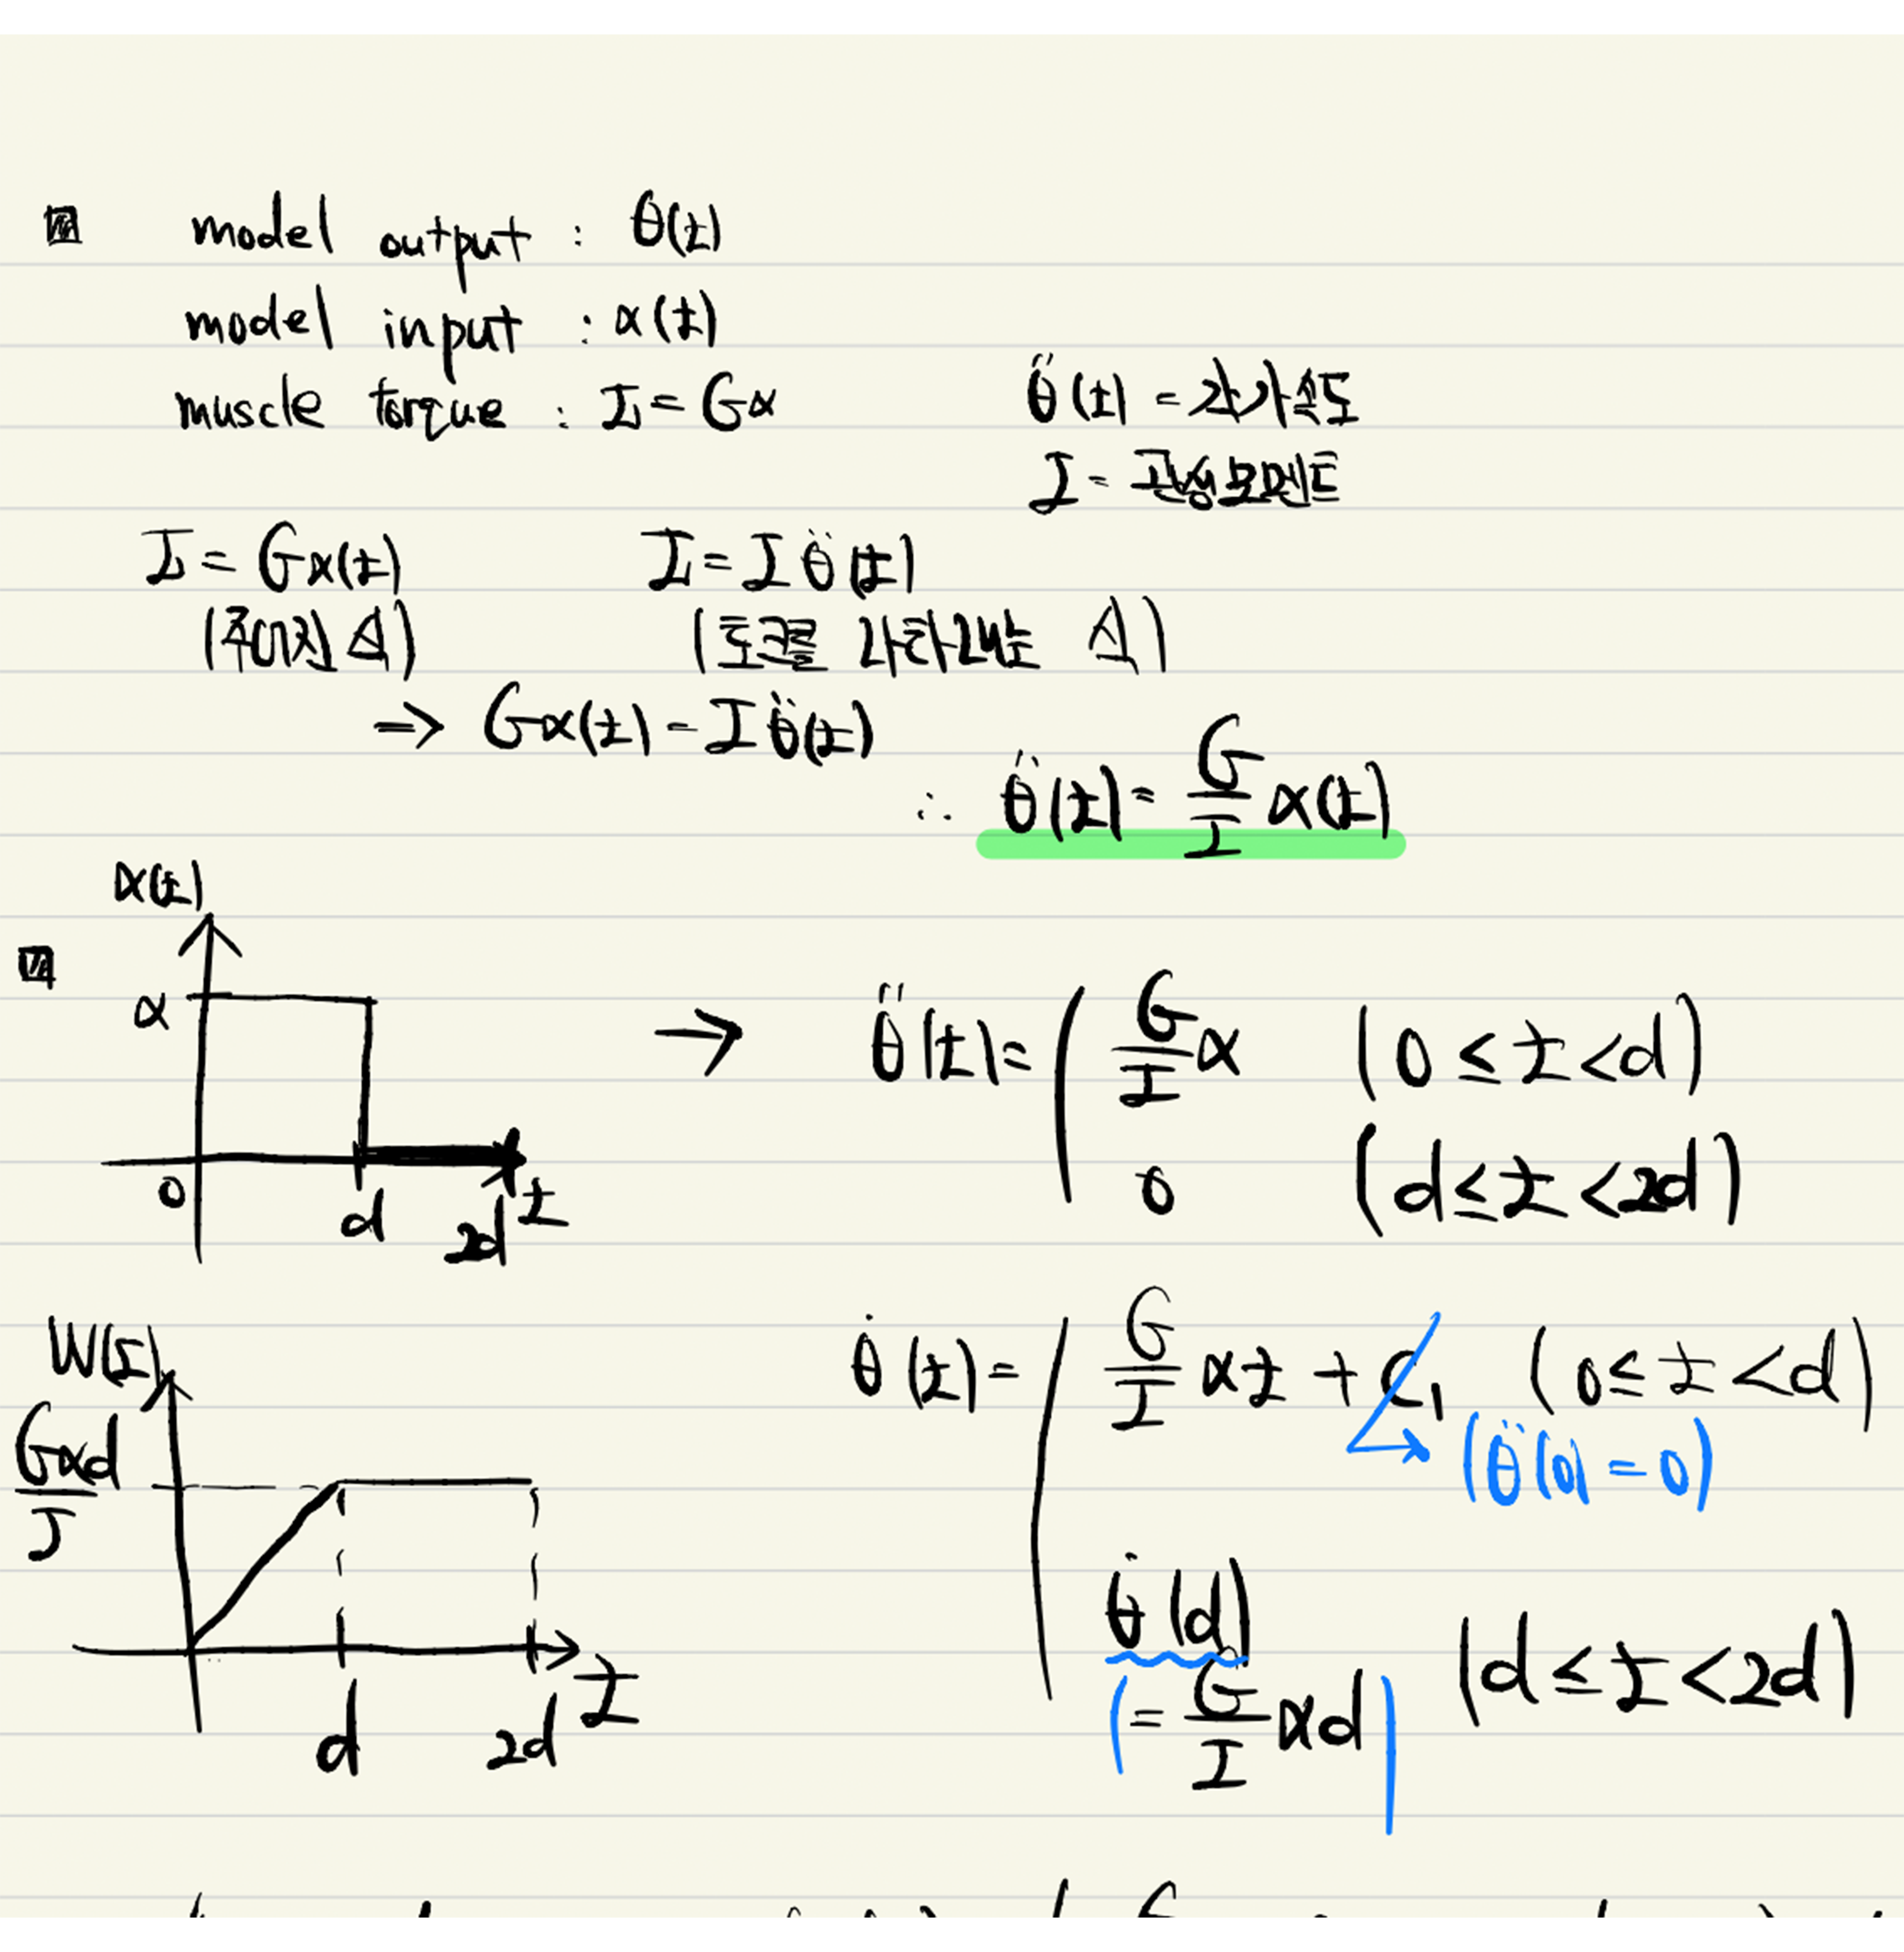 model output : θ(t)
model input : α(t)
muscle torque : τ = Gα
θ̈(t) = 각가속도
I = 관성모멘트
τ = Gα(t)
τ = I θ̈(t)
(주어진 식)
(토크를 나타내는 식)
⇒ Gα(t) = I θ̈(t)
∴ θ̈(t) = G/I α(t)
α(t)
α
0
d
2d
t
→ θ̈(t) = G/I α (0 ≤ t < d)
0 (d ≤ t < 2d)
W(t)
Gαd/I
d
2d
t
θ̇(t) = G/I αt + C₁ (0 ≤ t < d)
(θ̈(0) = 0)
θ̇(d)
(= G/I αd) (d ≤ t < 2d)